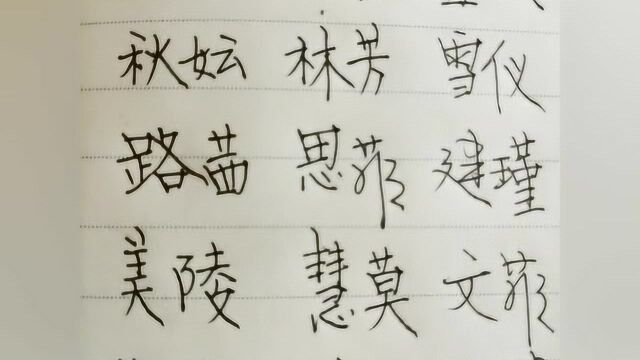 秋妘 林芳 雪仪
路茜 思菲 建瑾
美陵 慧莫 文菲